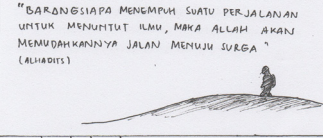 "BARANGSIAPA MENEMPUH SUATU PERJALANAN
UNTUK MENUNTUT ILMU, MAKA ALLAH AKAN
MEMUDAHKANNYA JALAN MENUJU SURGA"
(ALHADITS)